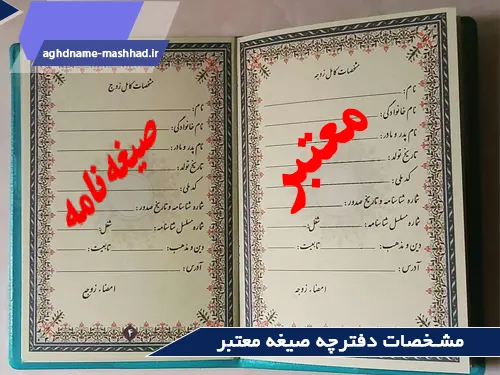 aghdname-mashhad.ir
مشخصات کامل زوجه
نام:
نام خانوادگی:
نام پدر و مادر:
تاریخ تولد:
کد ملی:
شماره شناسنامه و تاریخ صدور:
شماره مسلسل شناسنامه: شغل:
دین و مذهب: تابعیت:
آدرس:
امضاء زوجه
معتبر
مشخصات کامل زوج
نام:
نام خانوادگی:
نام پدر و مادر:
تاریخ تولد:
کد ملی:
شماره شناسنامه و تاریخ صدور:
شماره مسلسل شناسنامه: شغل:
دین و مذهب: تابعیت:
آدرس:
امضاء زوج
صیغه نامه
۴
مشخصات دفترچه صیغه معتبر